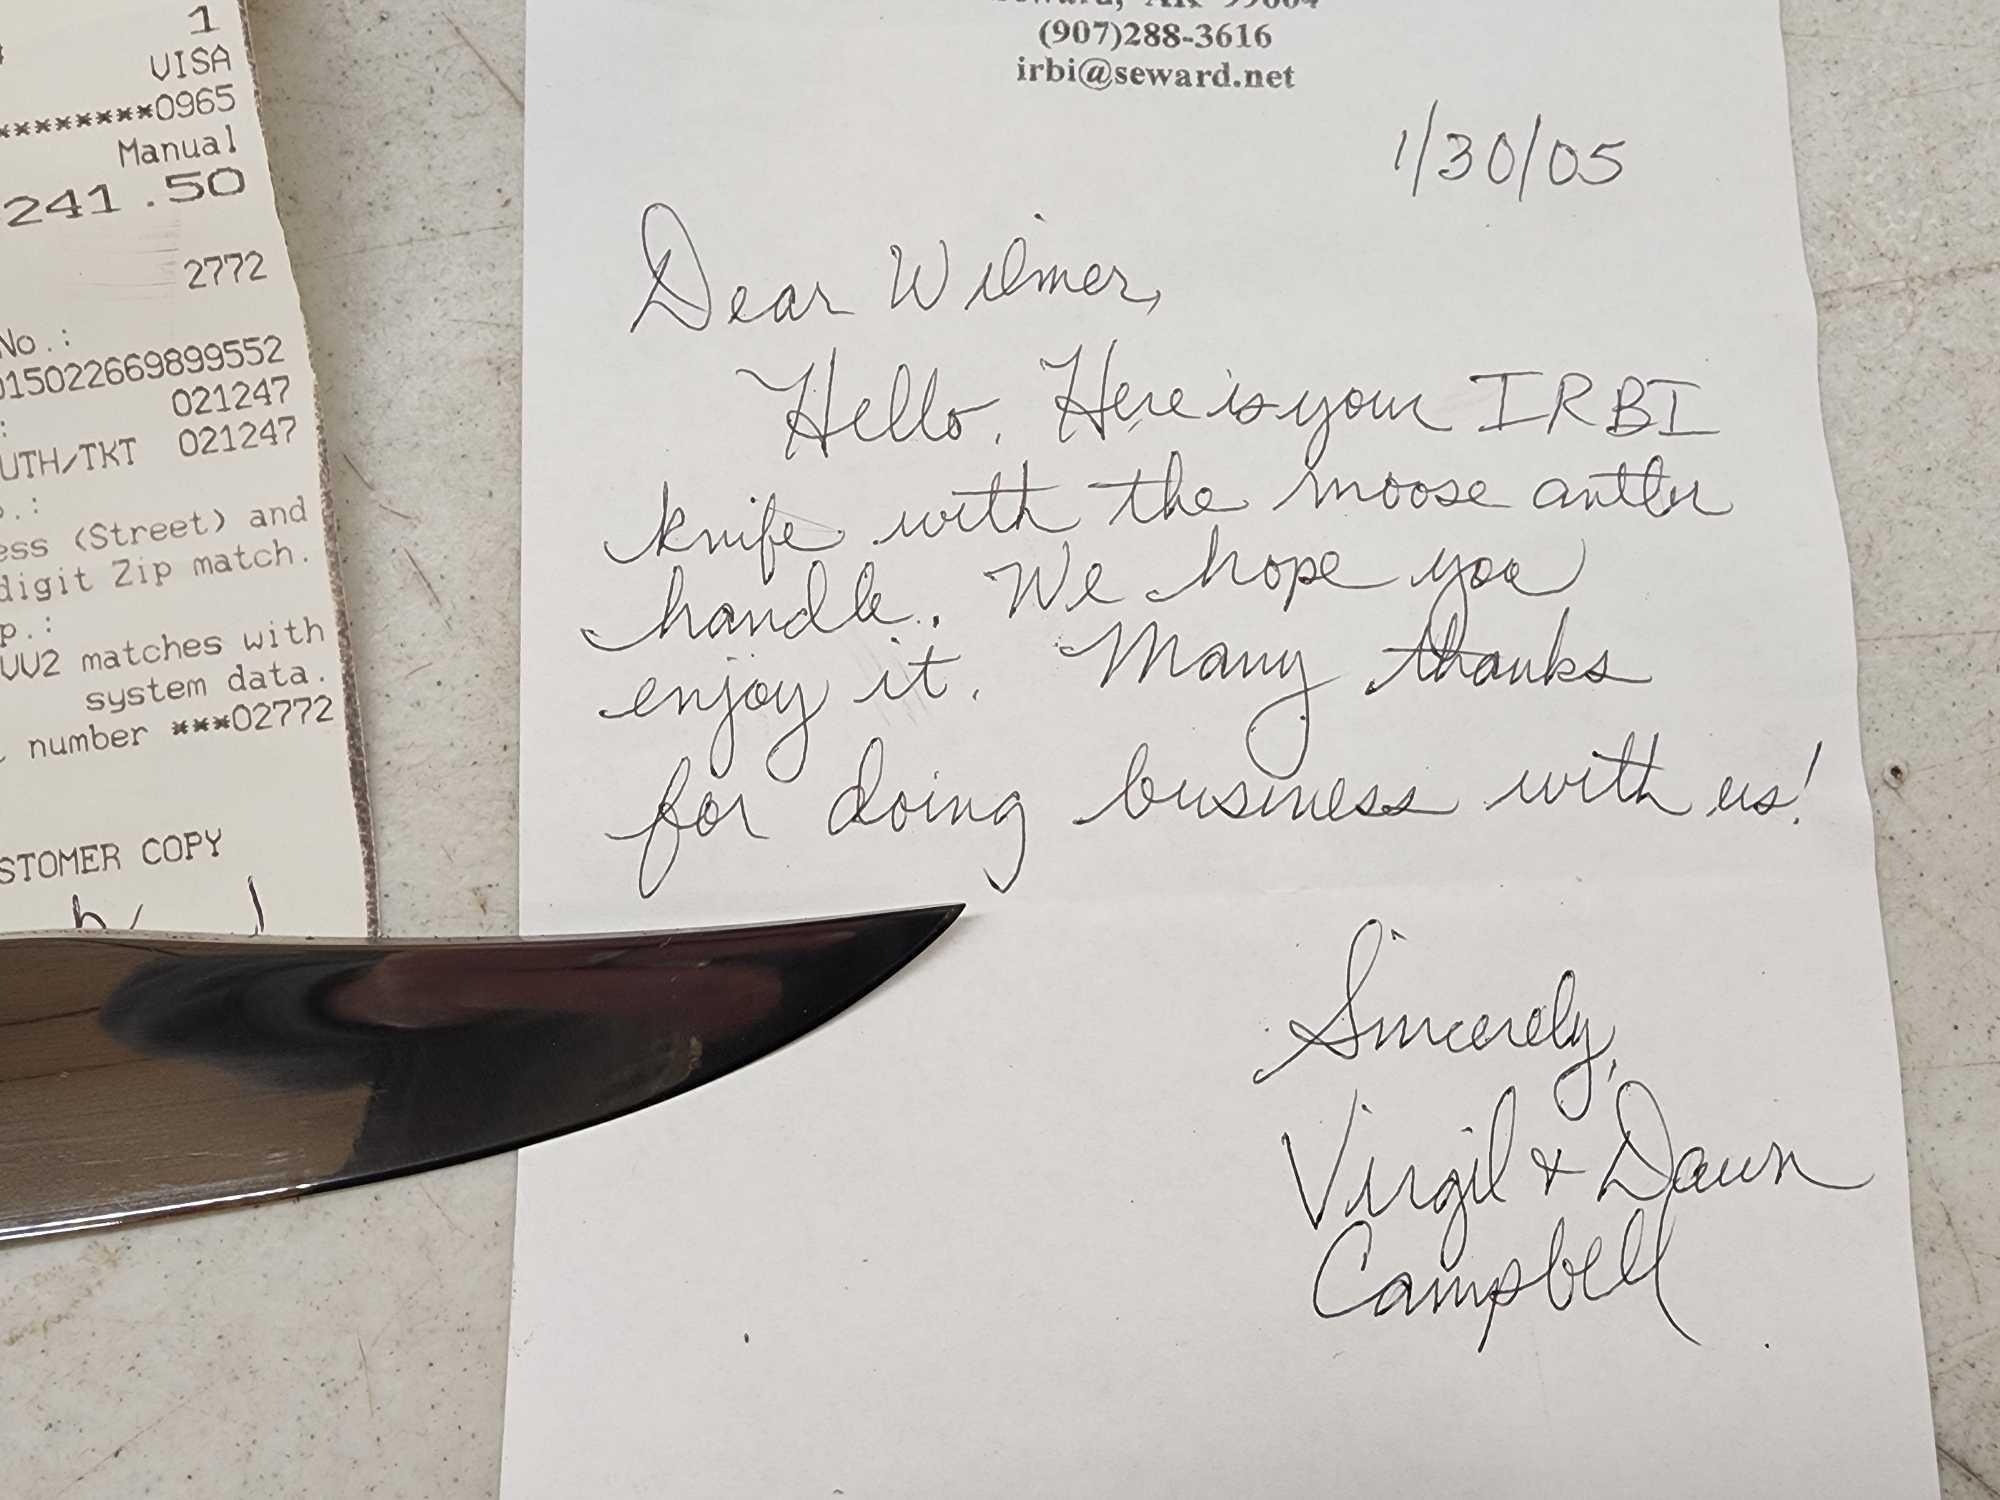 1
VISA
********0965
Manual
241.50
2772
No.:
015022669899552
021247
UTH/TKT 021247
ess (Street) and
digit Zip match.
p.:
VV2 matches with
system data.
number ***02772
STOMER COPY
Seward, AK 99664
(907)288-3616
irbi@seward.net
1/30/05
Dear Wilmer,
Hello. Here is your IRBI
knife with the moose antler
handle. We hope you
enjoy it. Many thanks
for doing business with us!
Sincerely,
Virgil & Dawn
Campbell